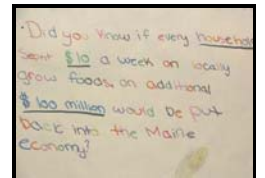 ·Did you know if every household
spent $10 a week on locally
grow foods, an additional
$100 million would be put
back into the Maine
economy?